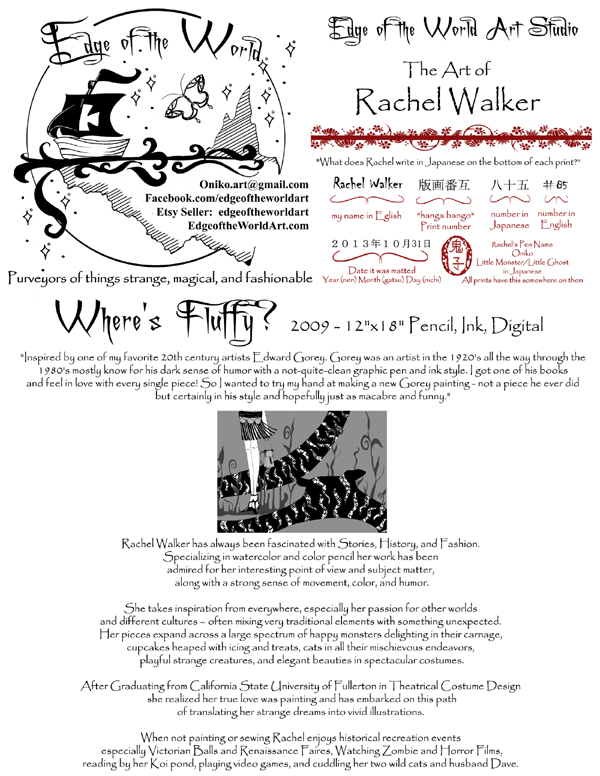 Edge of the World
Oniko.art@gmail.com
Facebook.com/edgeoftheworldart
Etsy Seller: edgeoftheworldart
EdgeoftheWorldArt.com
Purveyors of things strange, magical, and fashionable
Edge of the World Art Studio
The Art of
Rachel Walker
"What does Rachel write in Japanese on the bottom of each print?"
Rachel Walker 版画番互 八十五 # 85
my name in Eglish "hanga bango" Print number number in Japanese number in English
2013年10月31日
Date it was matted
Year (nen) Month (gatsu) Day (nichi)
鬼子
Rachel's Pen Name
Oniko
Little Monster/Little Ghost
in Japanese
All prints have this somewhere on them
Where's Fluffy? 2009 - 12"x18" Pencil, Ink, Digital
"Inspired by one of my favorite 20th century artists Edward Gorey. Gorey was an artist in the 1920's all the way through the
1980's mostly know for his dark sense of humor with a not-quite-clean graphic pen and ink style. I got one of his books
and feel in love with every single piece! So I wanted to try my hand at making a new Gorey painting - not a piece he ever did
but certainly in his style and hopefully just as macabre and funny."
Rachel Walker has always been fascinated with Stories, History, and Fashion.
Specializing in watercolor and color pencil her work has been
admired for her interesting point of view and subject matter,
along with a strong sense of movement, color, and humor.
She takes inspiration from everywhere, especially her passion for other worlds
and different cultures – often mixing very traditional elements with something unexpected.
Her pieces expand across a large spectrum of happy monsters delighting in their carnage,
cupcakes heaped with icing and treats, cats in all their mischievous endeavors,
playful strange creatures, and elegant beauties in spectacular costumes.
After Graduating from California State University of Fullerton in Theatrical Costume Design
she realized her true love was painting and has embarked on this path
of translating her strange dreams into vivid illustrations.
When not painting or sewing Rachel enjoys historical recreation events
especially Victorian Balls and Renaissance Faires, Watching Zombie and Horror Films,
reading by her Koi pond, playing video games, and cuddling her two wild cats and husband Dave.